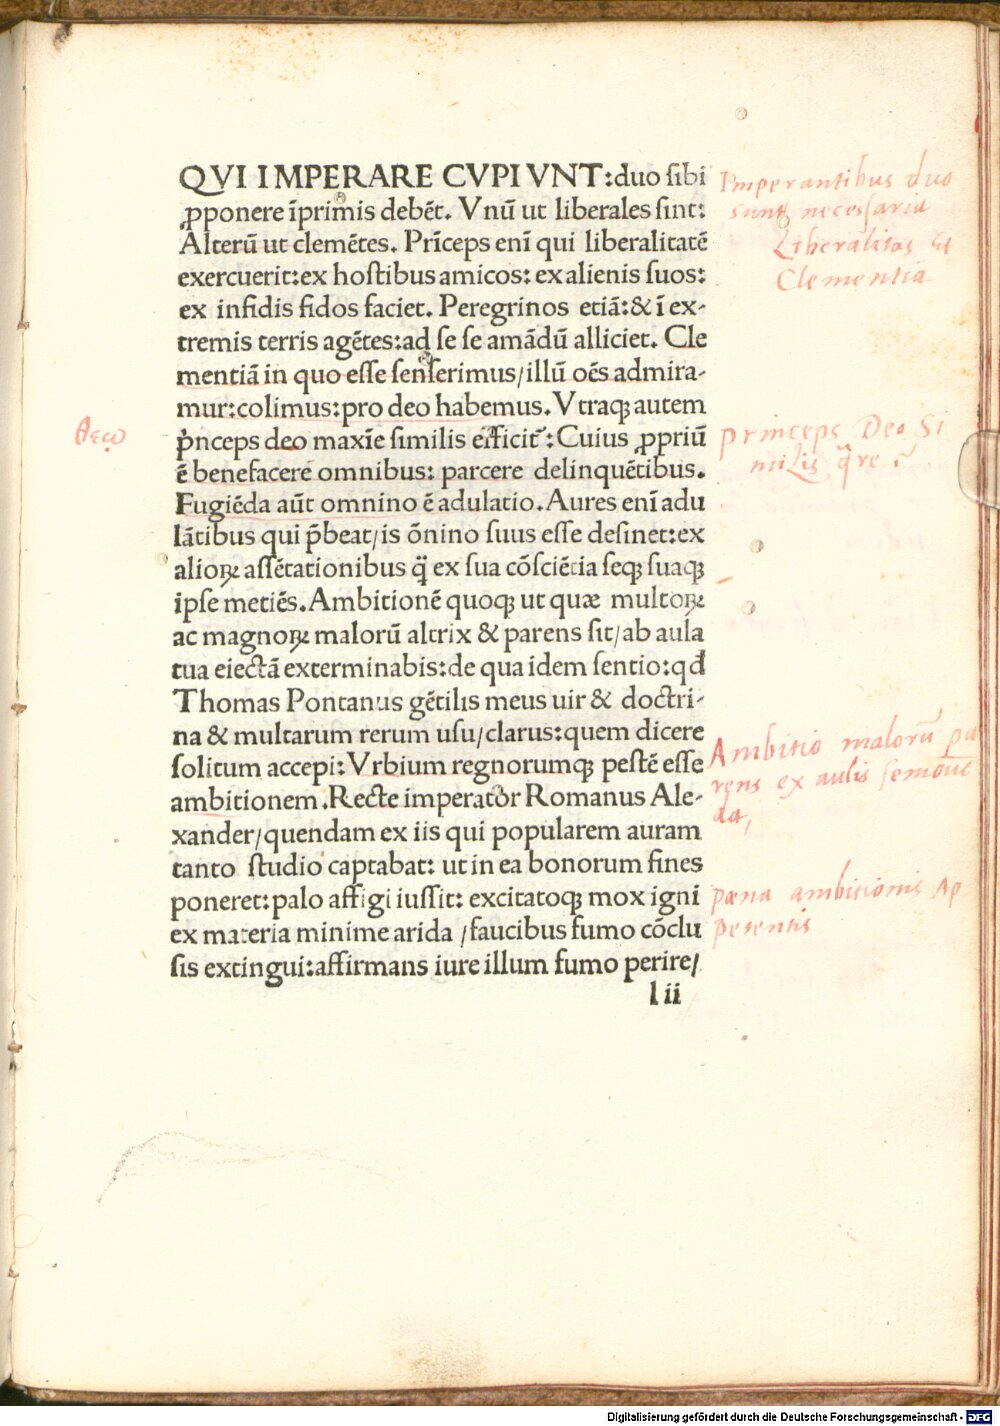 QVI IMPERARE CVPIVNT:duo sibi
ꝓponere ĩprimis debẽt. Vnũ ut liberales sint:
Alterũ ut clemẽtes. Prĩceps enĩ qui liberalitatẽ
exercuerit:ex hostibus amicos: ex alienis suos:
ex infidis fidos faciet. Peregrinos etiã:& ĩ ex-
tremis terris agẽtes:ad se se amãdũ alliciet. Cle
mentiã in quo esse senserimus/illũ oẽs admira-
mur:colimus:pro deo habemus. Vtraqꝫ autem
p̉nceps deo maxĩe similis efficit᷑:Cuius ꝓpriũ
ẽ benefacere omnibus: parcere delinquẽtibus.
Fugiẽda aũt omnino ẽ adulatio. Aures enĩ adu
lãtibus qui p̃beat/is õnino suus esse desinet:ex
alioꝝ assẽtationibus q̃ ex sua cõsciẽtia seqꝫ suaqꝫ
ipse metiẽs. Ambitionẽ quoqꝫ ut quæ multoꝝ
ac magnoꝝ malorũ altrix & parens sit/ab aula
tua eiectã exterminabis:de qua idem sentio:qđ
Thomas Pontanus gẽtilis meus uir & doctri-
na & multarum rerum usu/clarus:quem dicere
solitum accepi: Vrbium regnorumqꝫ pestẽ esse
ambitionem. Recte imperator Romanus Ale-
xander/quendam ex iis qui popularem auram
tanto studio captabat: ut in ea bonorum fines
poneret:palo affigi iussit: excitatoqꝫ mox igni
ex materia minime arida /faucibus fumo cõclu
sis extingui:affirmans iure illum fumo perire/
l ii
Imperantibus duo
sunt necessaria
Liberalitas Et
Clementia
θεω
princeps Deo Si
milis q̃re
Ambitio malorũ pa
rens ex aulis semoue
da,
pœna ambitionis Ap
petentis
Digitalisierung gefördert durch die Deutsche Forschungsgemeinschaft - DFG